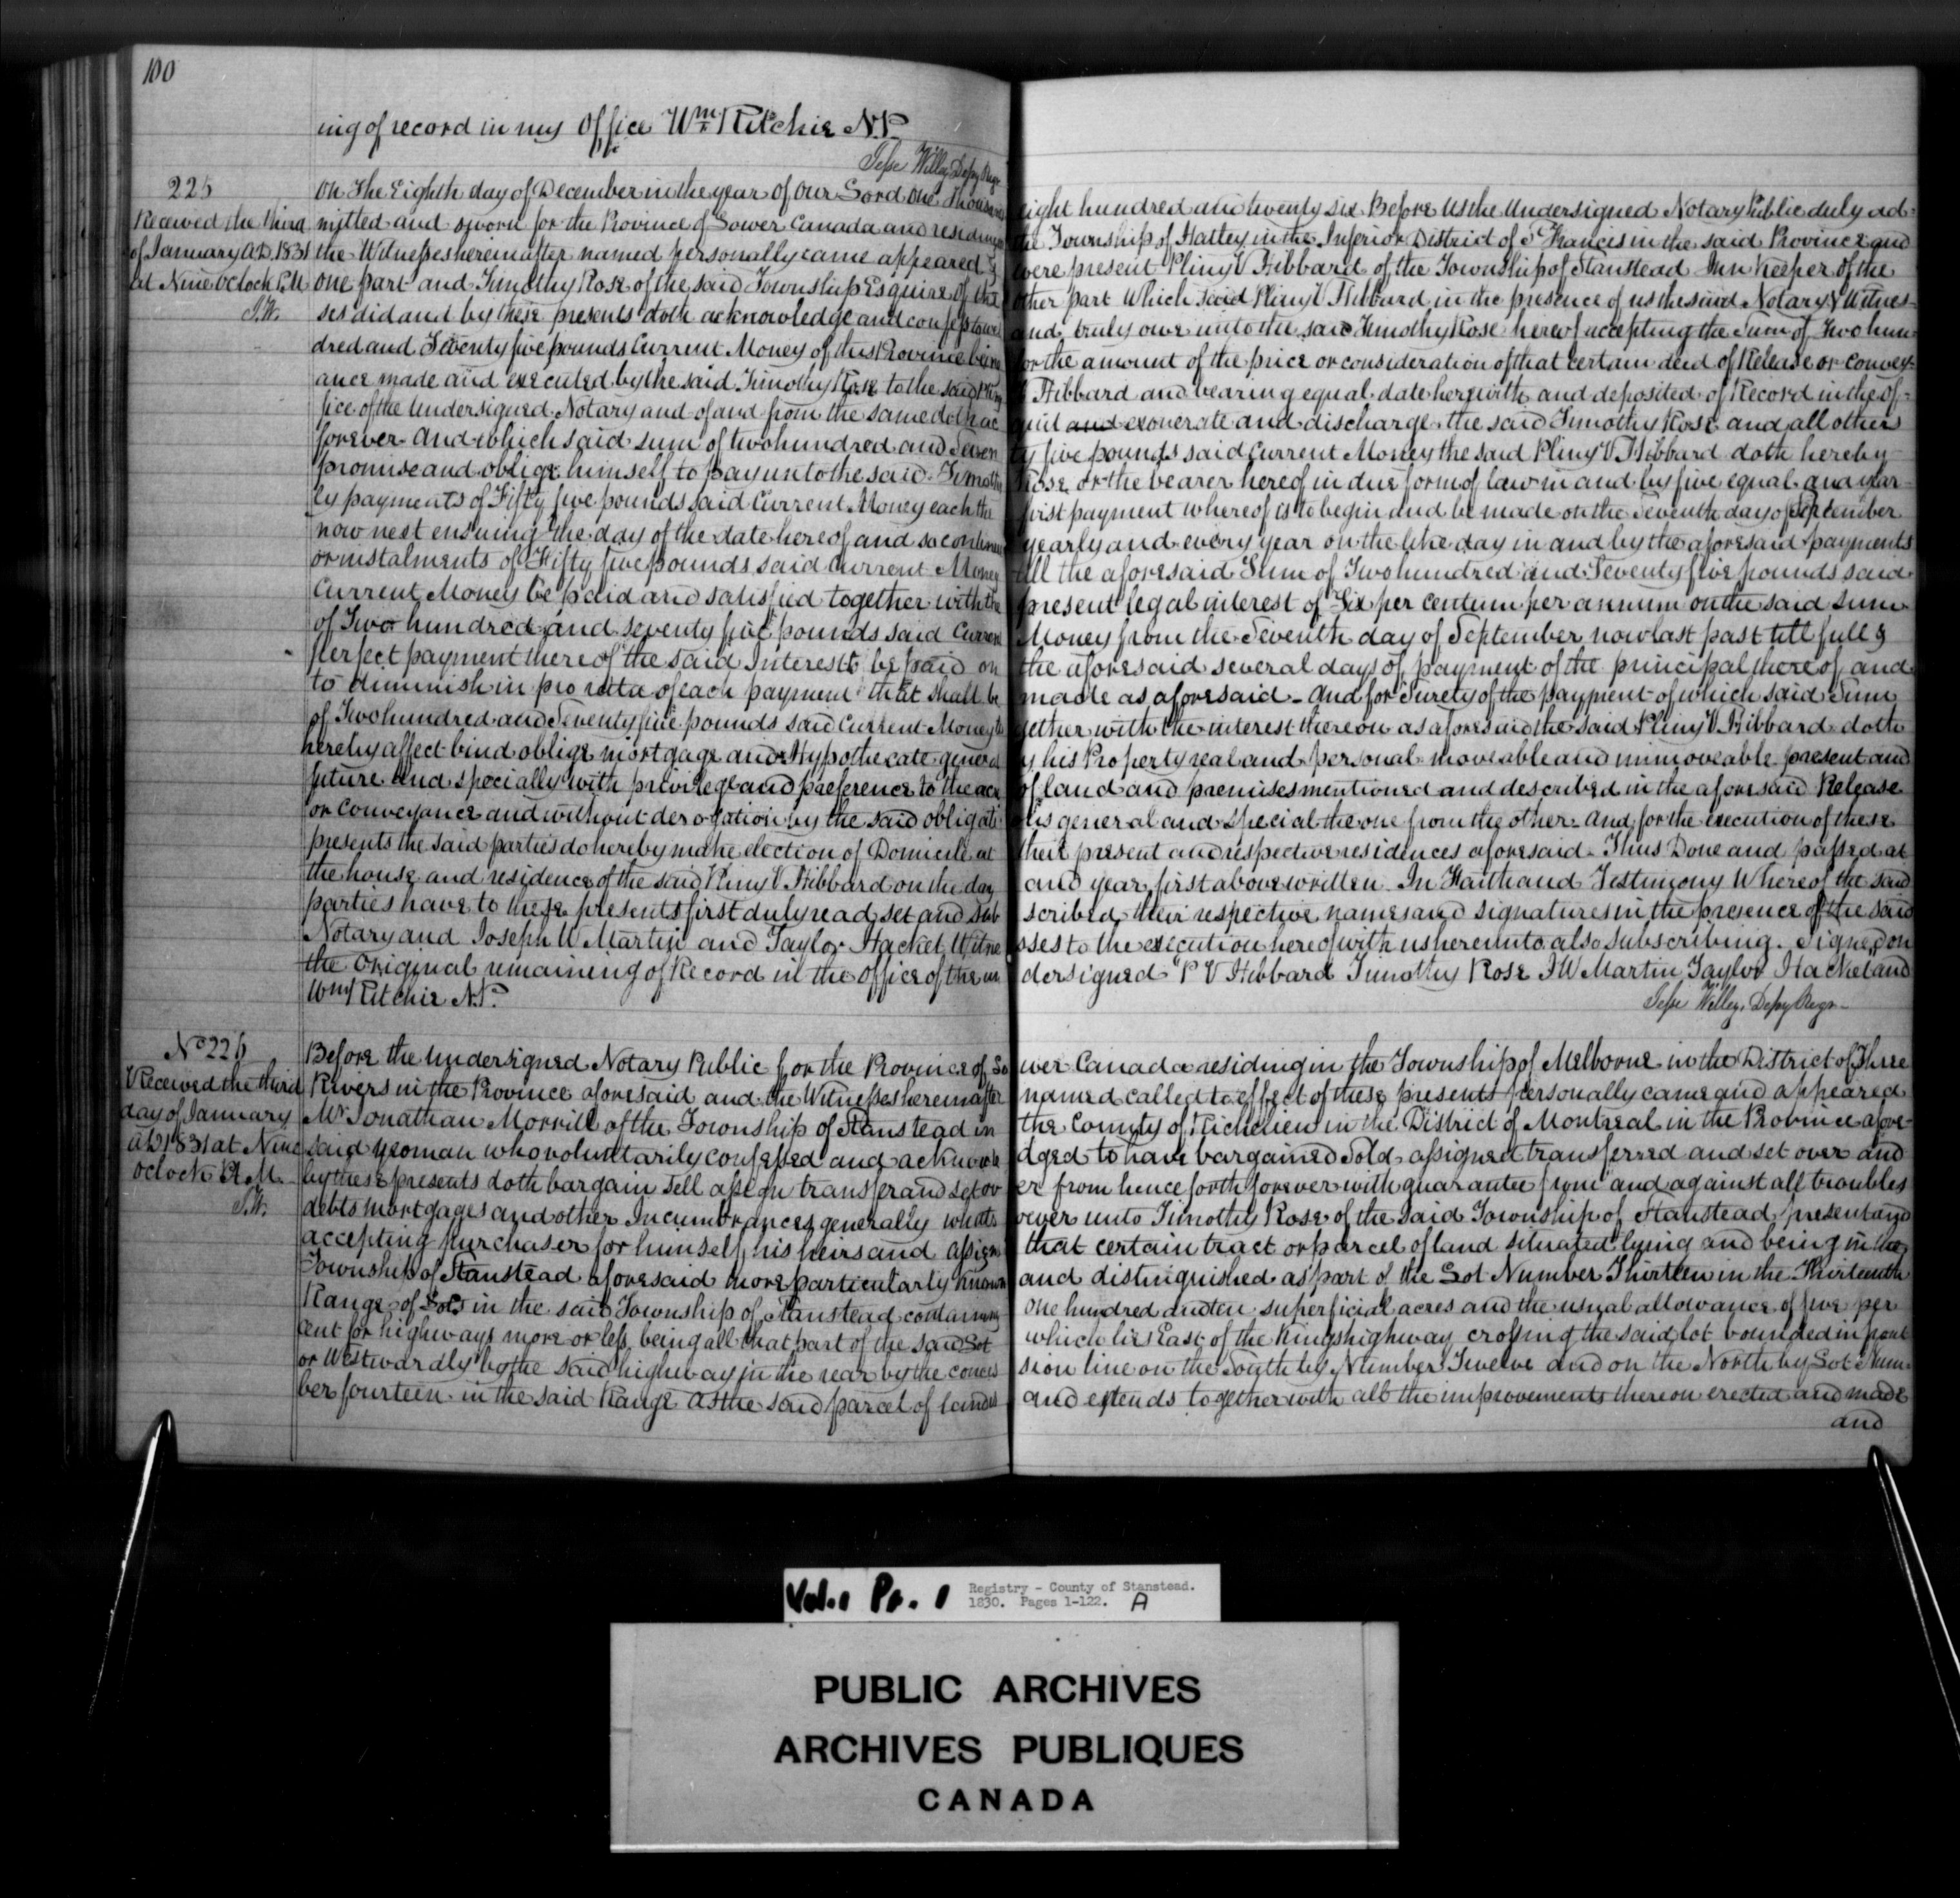 100
ing of record in my Office Wm Ritchie N.P.
Jesse Willey Depy Regr
225
Received the third
of January A.D. 1831
at Nine oclock P.M
J.W.
On The Eighth day of December in the year of Our Lord One Thousand eight hundred and twenty six Before Us the Undersigned Notary Public duly ad-
mitted and sworn for the Province of Lower Canada and residing in the Township of Hatley in the Inferior District of St Francis in the said Province and
the Witnesses hereinafter named personally came appeared & were present Pliny V Hibbard of the Township of Stanstead Inn Keeper of the
one part and Timothy Rose of the said Township Esquire of the other part Which said Pliny V Hibbard in the presence of us the said Notary & Witnes-
ses did and by these presents doth acknowledge and confess to owe and truly owe unto the said Timothy Rose hereof accepting the Sum of Two hun-
dred and Seventy five pounds Current Money of this Province being for the amount of the price or consideration of that certain deed of Release or Convey-
ance made and executed by the said Timothy Rose to the said Pliny V Hibbard and bearing equal date herewith and deposited of Record in the of-
fice of the Undersigned Notary and of and from the same doth ac quit and exonerate and discharge the said Timothy Rose and all others
forever And which said sum of two hundred and Seven ty five pounds said Current Money the said Pliny V Hibbard doth hereby
promise and oblige himself to pay unto the said Timothy Rose or the bearer hereof in due form of law in and by five equal and year-
ly payments of Fifty five pounds said Current Money each the first payment whereof is to begin and be made on the Seventh day of September
now next ensuing the day of the date hereof and so continue yearly and every year on the like day in and by the aforesaid payments
or instalments of Fifty five pounds said Current Money till the aforesaid Sum of Two hundred and Seventy five pounds said
Current Money be paid and satisfied together with the present legal interest of Six per centum per annum on the said Sum
of Two hundred and seventy five pounds said Current Money from the Seventh day of September now last past till full &
perfect payment thereof the said Interest to be paid on the aforesaid several days of payment of the principal thereof and
to diminish in pro rata of each payment that shall be made as aforesaid - And for Surety of the payment of which said Sum
of Two hundred and Seventy five pounds said Current Money to gether with the interest thereon as aforesaid the said Pliny V. Hibbard doth
hereby affect bind oblige mortgage and Hypothecate general ly his Property real and personal moveable and immoveable present and
future And specially with privilege and preference to the acre of land and premises mentioned and described in the aforesaid Release
or conveyance and without derogation by the said obligati ons general and special the one from the other - And for the execution of these
presents the said parties do hereby make election of Domicile at their present and respective residences aforesaid - Thus Done and passed at
the house and residence of the said Pliny V. Hibbard on the day and year first above written In Faith and Testimony Whereof the said
parties have to these presents first duly read set and sub scribed their respective names and signatures in the presence of the said
Notary and Joseph W Martin and Taylor Hacket Witne sses to the execution hereof with us hereunto also subscribing. Signed on
the Original remaining of Record in the Office of the un dersigned P V Hibbard Timothy Rose J W Martin Taylor Hacket and
Wm Ritchie N.P.
Jesse Willey, Depy Regr
No 226
Received the third
day of January
AD 1831 at Nine
oclock P.M.
J.W.
Before the Undersigned Notary Public for the Province of Lo wer Canada residing in the Township of Melborne in the District of Three
Rivers in the Province aforesaid and the Witnesses hereinafter named called to effect of these presents personally came and appeared
Mr Jonathan Morrill of the Township of Stanstead in the County of Richelieu in the District of Montreal in the Province afore-
said yeoman who voluntarily confessed and acknowle dged to have bargained Sold assigned transferred and set over and
by these presents doth bargain sell assign transfer and set ov er from henceforth forever with guarantee from and against all troubles
debts mortgages and other Incumbrances generally whats oever unto Timothy Rose of the said Township of Stanstead present and
accepting purchaser for himself his heirs and assigns that certain tract or parcel of land situated lying and being in the
Township of Stanstead aforesaid more particularly known and distinguished as part of the Lot Number Thirteen in the Thirteenth
Range of Lots in the said Township of Stanstead containing One hundred and ten superficial acres and the usual allowance of five per
cent for highways more or less being all that part of the said Lot which lies East of the Kings highway crossing the said lot bounded in front
or Westwardly by the said highway in the rear by the conces sion line on the South by Number Twelve and on the North by Lot Num-
ber fourteen in the said Range As the said parcel of land is and extends together with all the improvements thereon erected and made
and
Vol. 1 Pr. 1
Registry - County of Stanstead.
1830. Pages 1-122. A
PUBLIC ARCHIVES
ARCHIVES PUBLIQUES
CANADA